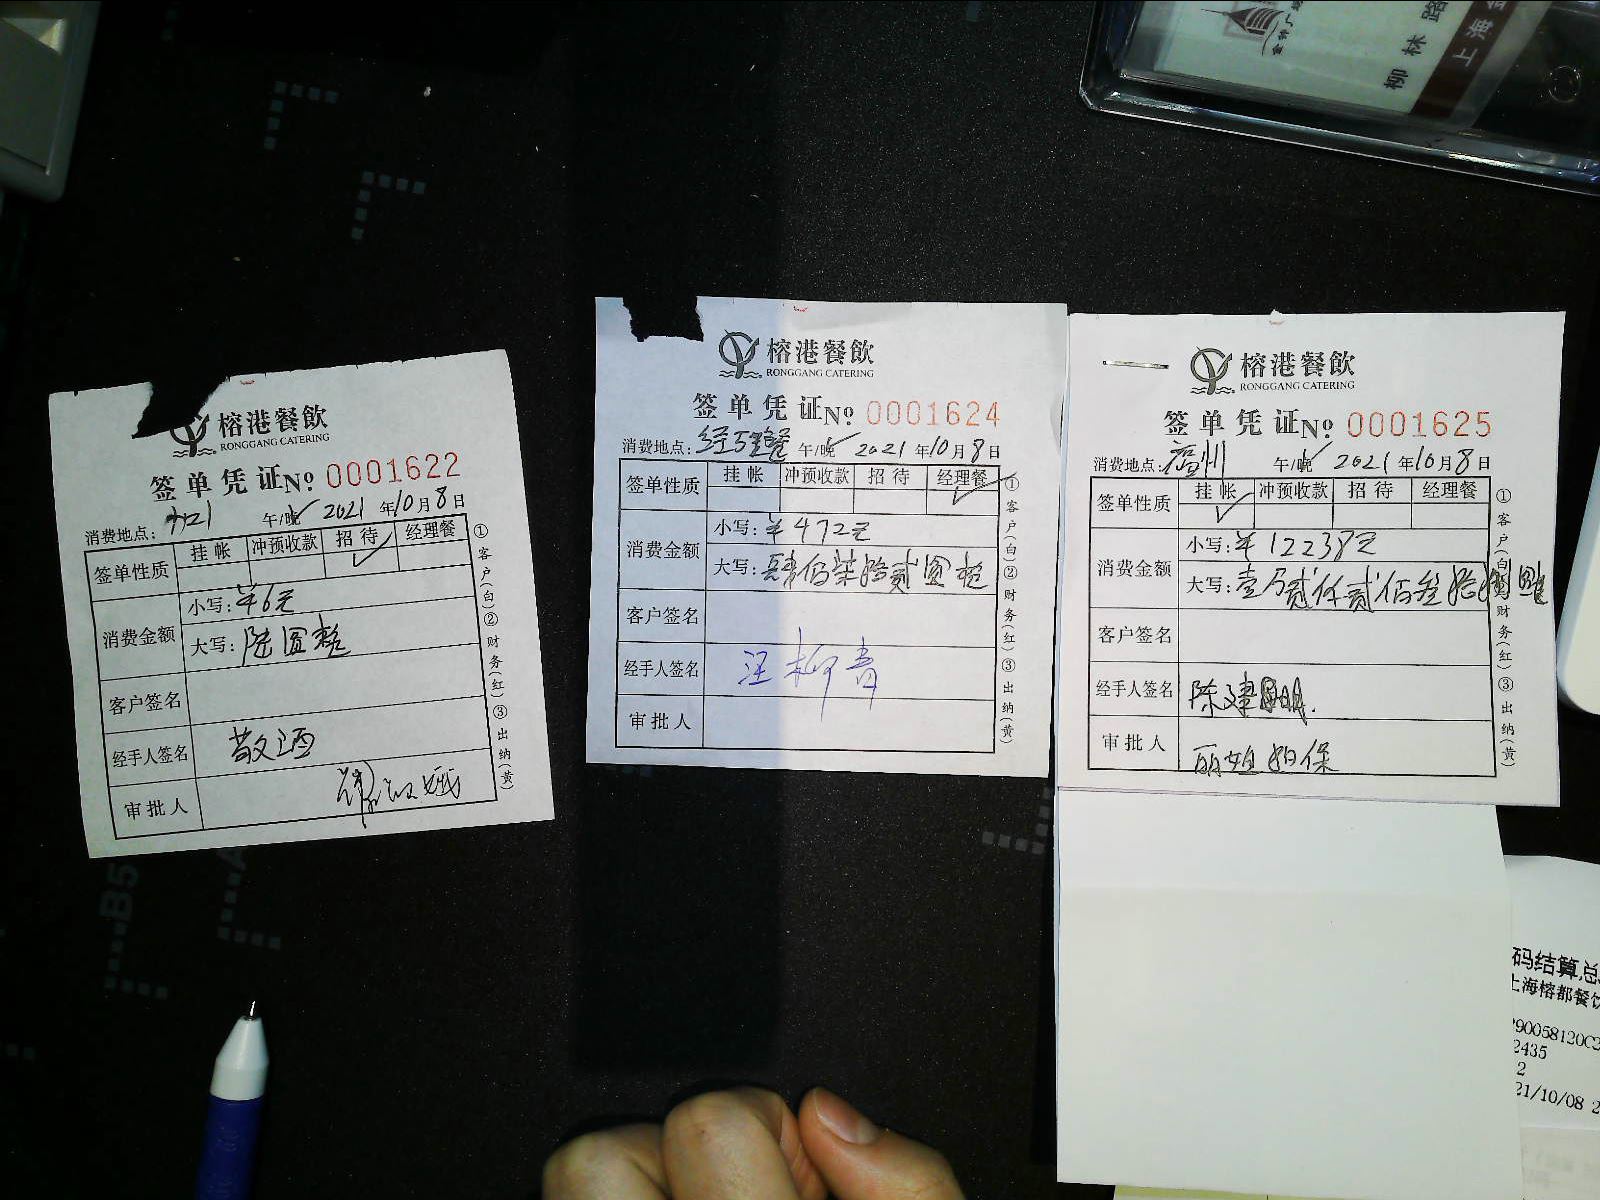 柳林路
上海金
榕港餐飲
RONGGANG CATERING
签单凭证 No 0001622
消费地点: 午/晚 2021年10月8日
签单性质 挂帐 冲预收款 招待 经理餐
消费金额 小写: ¥6元
大写: 陆圆整
客户签名
经手人签名 敬酒
审批人
①客户(白)②财务(红)③出纳(黄)
榕港餐飲
RONGGANG CATERING
签单凭证 No 0001624
消费地点: 经理餐 午/晚 2021年10月8日
签单性质 挂帐 冲预收款 招待 经理餐
消费金额 小写: ¥472元
大写: 肆佰柒拾贰圆整
客户签名
经手人签名 汪柳青
审批人
①客户(白)②财务(红)③出纳(黄)
榕港餐飲
RONGGANG CATERING
签单凭证 No 0001625
消费地点: 福州 午/晚 2021年10月8日
签单性质 挂帐 冲预收款 招待 经理餐
消费金额 小写: ¥12238元
大写: 壹万贰仟贰佰叁拾
客户签名
经手人签名 陈建明
审批人 丽姐担保
①客户(白) 财务(红)③出纳(黄)
码结算总
上海榕都餐饮
90058120C2
2435
2
21/10/08 2
B5
A